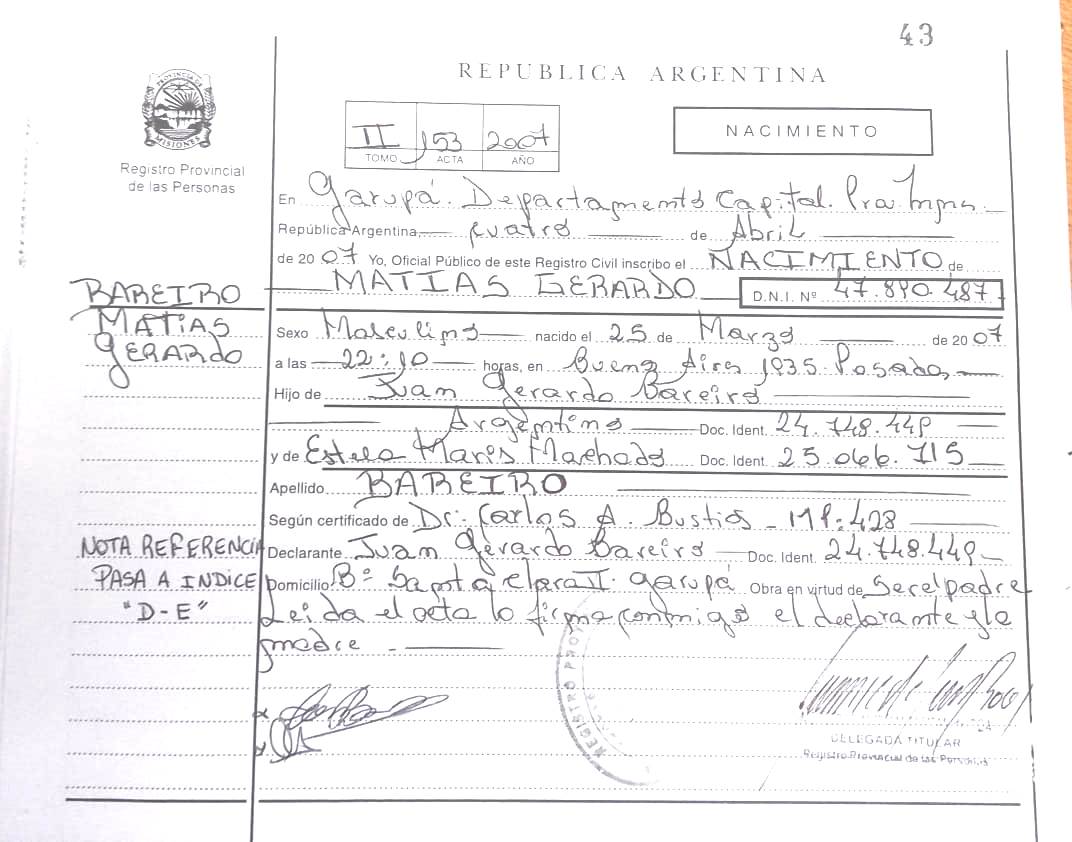 43
REPUBLICA ARGENTINA
PROVINCIA DE MISIONES
Registro Provincial
de las Personas
II 153 2007
TOMO ACTA AÑO
NACIMIENTO
En Garupá. Departamento Capital. Pcia Mnes.
República Argentina, cuatro de Abril
de 2007 Yo, Oficial Público de este Registro Civil inscribo el NACIMIENTO de
MATIAS GERARDO D.N.I. Nº 47.890.487
BAREIRO
MATIAS
GERARDO
Sexo Masculino nacido el 25 de Marzo de 2007
a las 22:10 horas, en Buenos Aires 1935 Posadas
Hijo de Juan Gerardo Bareiro
Argentino Doc. Ident. 24.748.449
y de Estela Maris Machado Doc. Ident. 25.066.715
Apellido BAREIRO
Según certificado de Dr. Carlos A. Bustios - MP: 428
NOTA REFERENCIA
PASA A INDICE
"D-E"
Declarante Juan Gerardo Bareiro Doc. Ident. 24.748.449
Domicilio Bº Santa Clara II. Garupá Obra en virtud de Ser el padre
Leida el acta lo firma conmigo el declarante y la
madre
REGISTRO PROV
DELEGADA TITULAR
Registro Provincial de las Personas